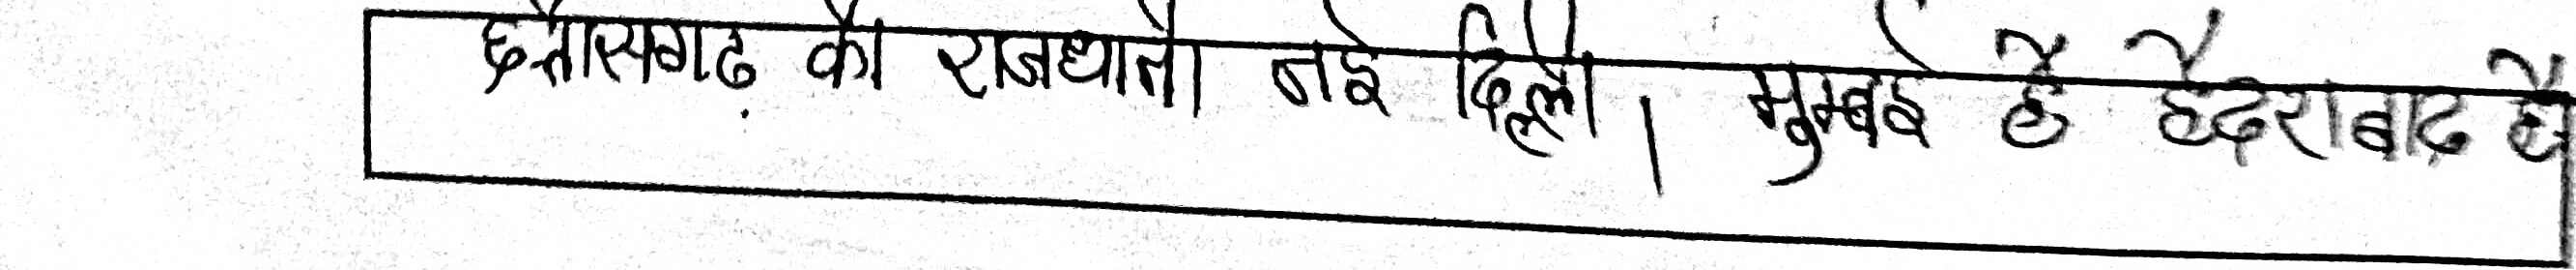 छत्तीसगढ़ की राजधानी नई दिल्ली । मुम्बई है हैदराबाद है